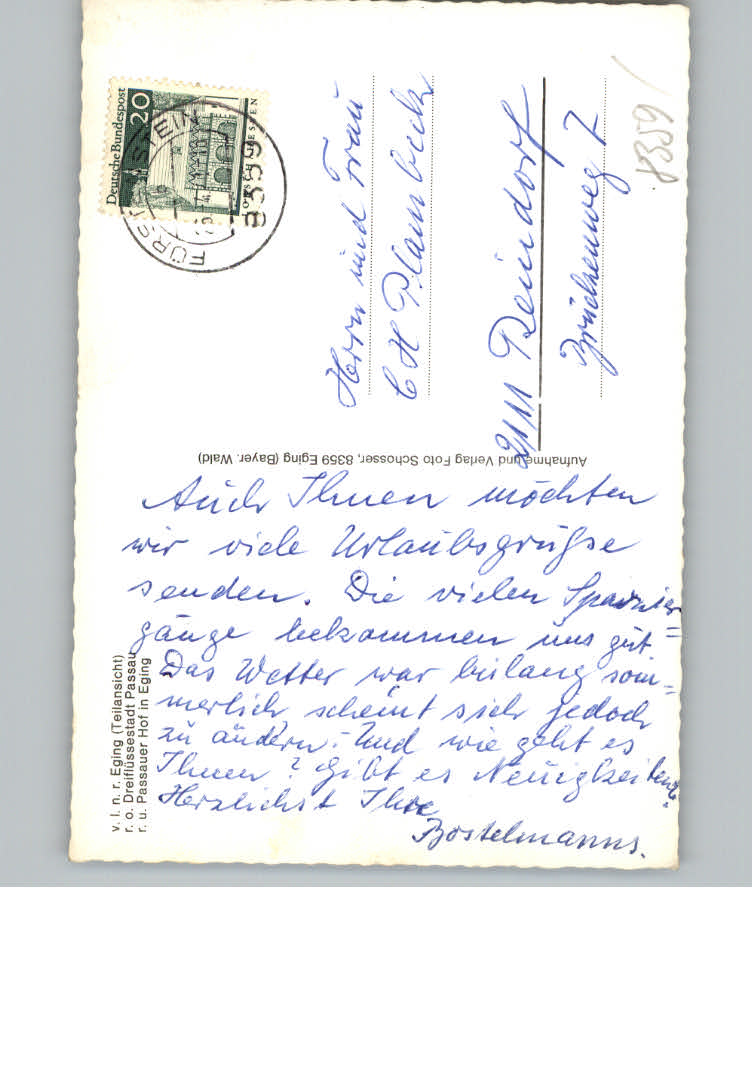 Deutsche Bundespost
20
FÜRSTENSTEIN
8359
Herrn und Frau
C H Plambeck
2111 Reindorf
Brückenweg 7
8359
Aufnahme und Verlag Foto Schosser, 8359 Eging (Bayer. Wald)
Auch Ihnen möchten
wir viele Urlaubsgrüße
senden. Die vielen Spazier=
gänge bekommen uns gut
Das Wetter war bislang som=
merlich scheint sich jedoch
zu ändern. Und wie geht es
Ihnen? Gibt es Neuigkeiten?
Herzlichst Ihre
Bostelmanns.
v. l. n. r. Eging (Teilansicht)
r. o. Dreiflüssestadt Passau
r. u. Passauer Hof in Eging